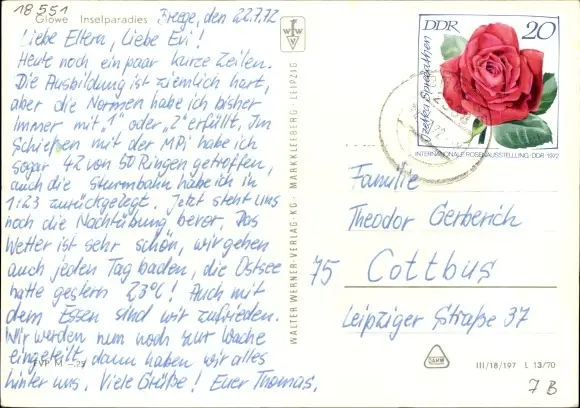 18 551
Glowe Inselparadies
Preege, den 22.7.72
Liebe Eltern, Liebe Evi!
Heute noch ein paar kurze Zeilen.
Die Ausbildung ist ziemlich hart,
aber die Normen habe ich bisher
immer mit "1" oder "2" erfüllt. Im
Schießen mit der MPi habe ich
sogar 42 von 50 Ringen getroffen,
auch die Sturmbahn habe ich in
1:23 zurückgelegt. Jetzt steht uns
noch die Nachtübung bevor. Das
Wetter ist sehr schön, wir gehen
auch jeden Tag baden, die Ostsee
hatte gestern 23°C! Auch mit
dem Essen sind wir zufrieden.
Wir werden nun noch zur Wache
eingeteilt, dann haben wir alles
hinter uns. Viele Grüße! Euer Thomas.
WALTER WERNER-VERLAG-KG · MARKKLEEBERG - LEIPZIG
DDR 20
INTERNATIONALE ROSENAUSSTELLUNG · DDR 1972
Familie
Theodor Gerberich
75 Cottbus
Leipziger Straße 37
III/18/197 L 13/70
7 B